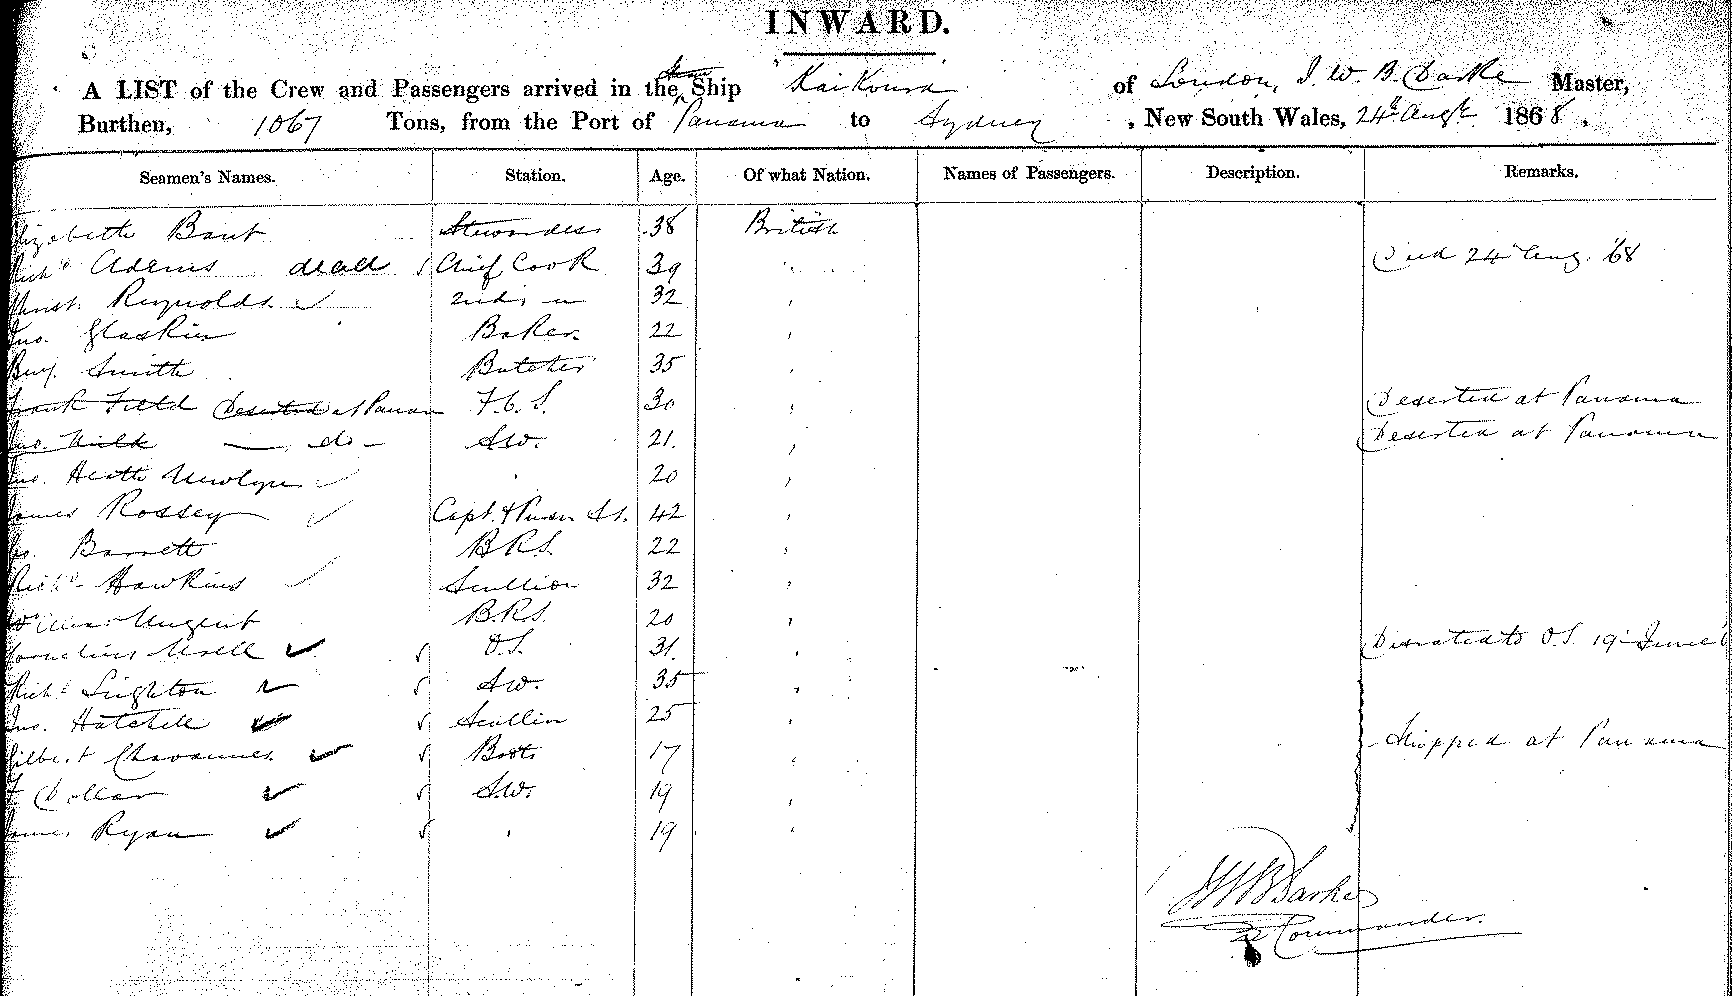 INWARD.
A LIST of the Crew and Passengers arrived in the Steam Ship Kaikoura of London, J. W. B. Darke Master,
Burthen, 1067 Tons, from the Port of Panama to Sydney, New South Wales, 24th Augt 1868.
Seamen's Names. Station. Age. Of what Nation. Names of Passengers. Description. Remarks.
Elizabeth Bant Stewardess 38 British
Richd Adams dead Chief Cook 39 " Died 24 Aug. '68
Christ. Reynolds 2nd " 32 "
Jno. Glaskin Baker 22 "
Benj. Smith Butcher 35 "
Frank Field Deserted at Panama F.C.S. 30 " Deserted at Panama
Jno. — do — AW. 21. " Deserted at Panama
Jno. Heath Newlyn " 20 "
James Rossey Capt. & Purser St. 42 "
Barrett B.R.S. 22 "
Richd Hawkins Scullion 32 "
William Nugent B.R.S. 20 "
Cornelius O.S. 31. " Disrated to O.S. 19 June
Richd Leighton AW. 35 "
Jno. Hatchell Scullin 25 "
Gilbert Chavannes Boots 17 " Shipped at Panama
Dollar AW. 19 "
James Ryan " 19 "
JWB Darke
Commander.